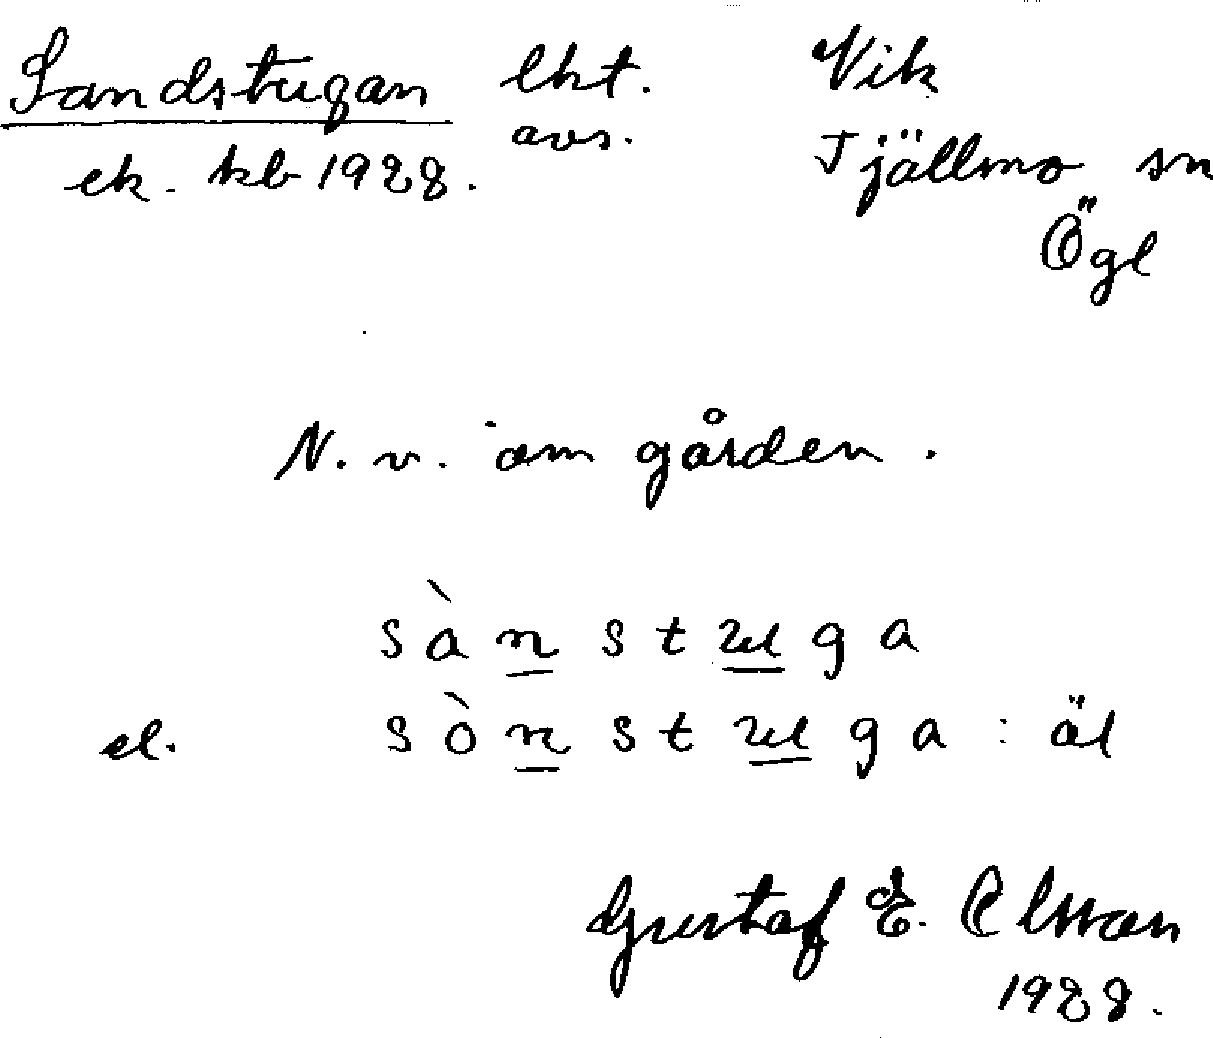 Sandstugan lht. Vik
avs. Tjällmo sn
ek. kb 1928. Ögl
N. v. om gården.
sànstuga
el. sònstuga : äl
Gustaf E. Olsson
1928.